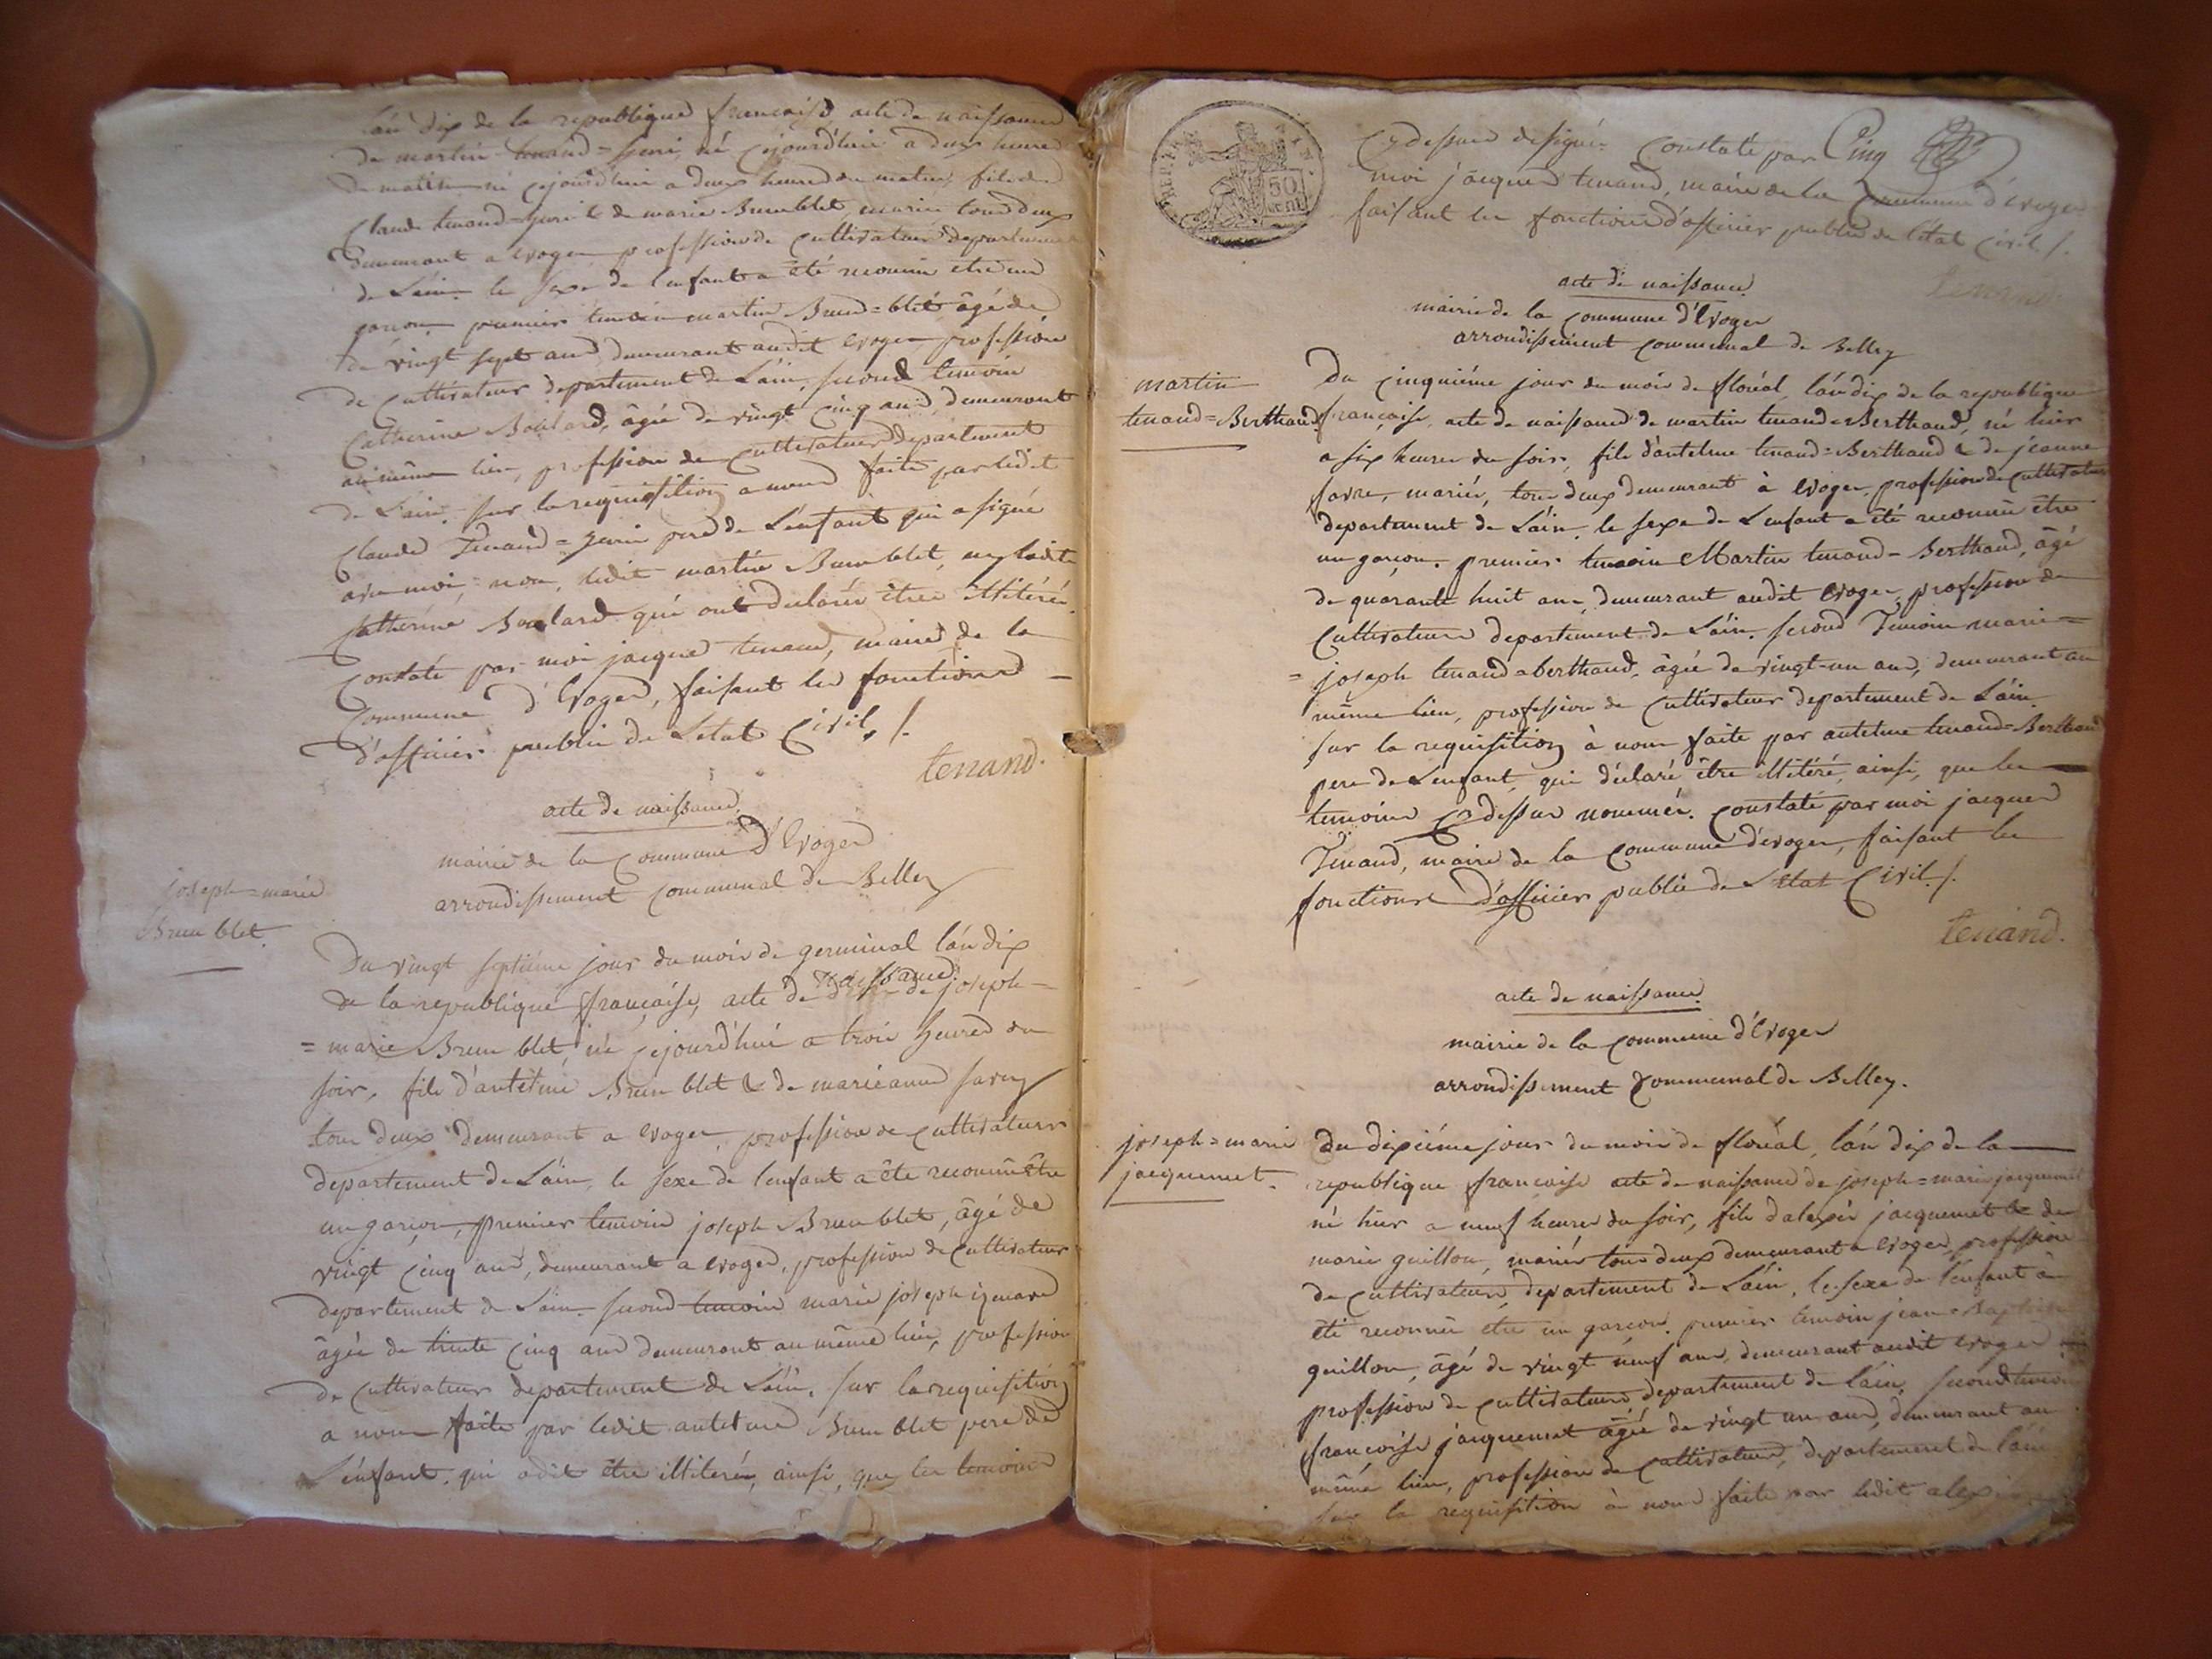 l'an dix de la republique francaise, acte de naissance
de martin tenand = ne cejourd'hui a deux heures
du matin né cejourd'hui a deux heures du matin, fils de
Claude tenand = & de marie Brun blet, mariés tous deux
demeurant a Evoges profession de Cultivateurs departement
de L'ain. le sexe de l'enfant a été reconnu etre un
garçon, premier temoin martin Brun = blet âgé de
de vingt sept ans, demeurant audit Evoges, profession
de Cultivateur departement de L'ain, second temoin
Catherine Boulard, âgée de vingt Cinq ans, demeurant
au même lieu, profession de Cultivateur departement
de L'ain. sur la requisition a nous faite par ledit
Claude Tenand = pere de L'enfant qui a signé
avec moi, non, ledit martin Brun blet, ny ladite
Catherine Boulard qui ont declarés être illitérés.
Constaté par moi jacques tenand, maire de la
Commune d'Evoges, faisant les fonctions
d'officier public de L'etat Civil, /.
tenand.
acte de naissance.
mairie de la Commune d'Evoges
arrondissement communal de Belley
joseph = marie
Brun blet.
Du vingt septième jour du mois de germinal l'an dix
naissance
de la republique française, acte de de joseph =
= marie Brun blet, né cejourd'hui a trois heures du
soir, fils d'antelme Brun blet & de marieanne
tous deux demeurant a Evoges, profession de Cultivateurs
departement de L'ain, le sexe de l'enfant a été reconnu être
un garçon, premier temoin joseph Brun blet, âgé de
vingt Cinq ans, demeurant a Evoges, profession de Cultivateur
departement de L'ain. second temoin marie joseph
âgée de trente Cinq ans demeurant au même lieu, profession
de Cultivateur departement de L'ain, sur la requisition
a nous faite par ledit antelme Brun blet pere de
L'enfant, qui a dit être illiteré, ainsi, que les temoins
Cydessus designés Constaté par Cinq
moi jacques tenand, maire de la Commune d'Evoges
faisant les fonctions d'officier public de l'état Civil /.
tenand
50
acte de naissance.
mairie de la Commune d'Evoges
arrondissement communal de Belley
martin
tenand = Berthand
Du cinquième jour du mois de floréal, l'an dix de la republique
française, acte de naissance de martin tenand = Berthand, né hier
a six heures du soir, fils d'antelme tenand = Berthand & de jeanne
favre, mariés, tous deux demeurant à Evoges, profession de Cultivateurs
departement de L'ain. le sexe de L'enfant a été reconnu être
un garçon. premier temoin Martin tenand = Berthand, âgé
de quarante huit ans, demeurant audit Evoges, profession de
Cultivateur departement de L'ain. second Temoin marie =
= joseph tenand = berthand, âgée de vingt-un ans, demeurant au
même lieu, profession de Cultivateur departement de L'ain.
sur la requisition à nous faite par antelme tenand = Berthand
pere de L'enfant, qui déclaré être illitéré, ainsi, que les
temoins Cydessus nommés. Constaté par moi jacques
Tenand, maire de la Commune d'evoges, faisant les
fonctions d'officier public de L'etat Civil. /.
tenand.
acte de naissance.
mairie de la commune d'Evoges
arrondissement Communal de Belley.
joseph = marie
jacquemet.
du dixième jour du mois de floréal, l'an dix de la
republique francaise acte de naissance de joseph = marie jacquemet
né hier a neuf heures du soir, fils d'alexis jacquemet & de
marie guillon, mariés tous deux demeurant a Evoges, profession
de Cultivateurs, departement de L'ain, le sexe de l'enfant à
été reconnu etre un garcon. premier temoin jean = Baptiste
guillon, âgé de vingt neuf ans, demeurant audit Evoges
profession de Cultivateur, departement de L'ain, second temoin
françoise jacquemet âgée de vingt un ans, demeurant au
même lieu, profession de Cultivateur, departement de l'ain
sur la requisition à nous faite par ledit alexis